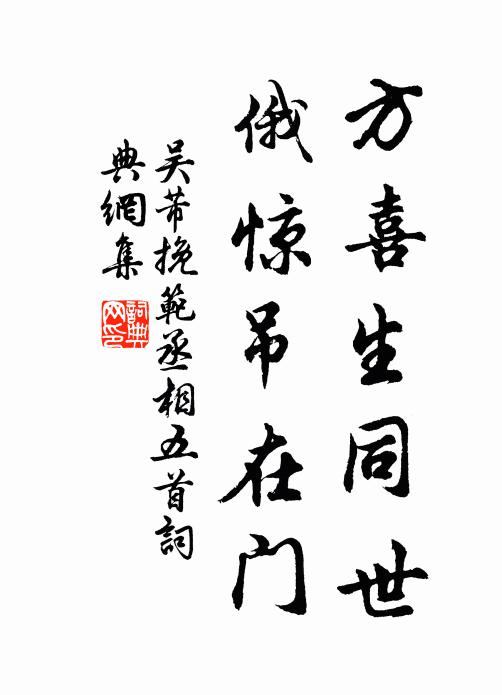 方喜生同世
俄惊吊在门
吴芾挽範丞相五首詞
典網集
詞典
网印